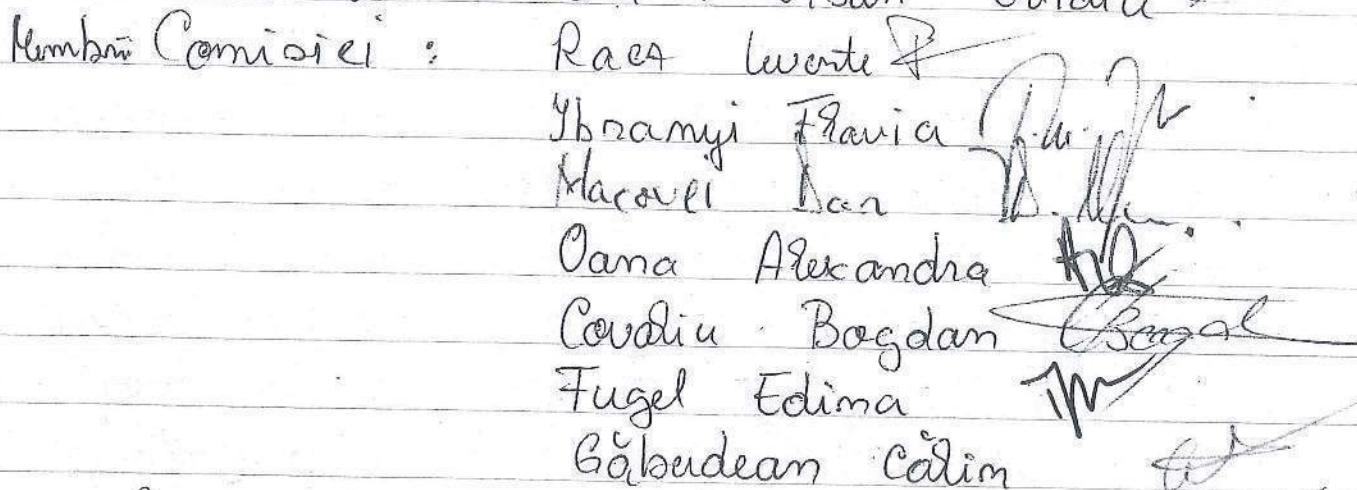 Membrii Comisiei : Racz Levente
Ibranyi Flavia
Macovei Dan
Oana Alexandra
Covaliu Bogdan
Fugel Edina
Găbudean Călin